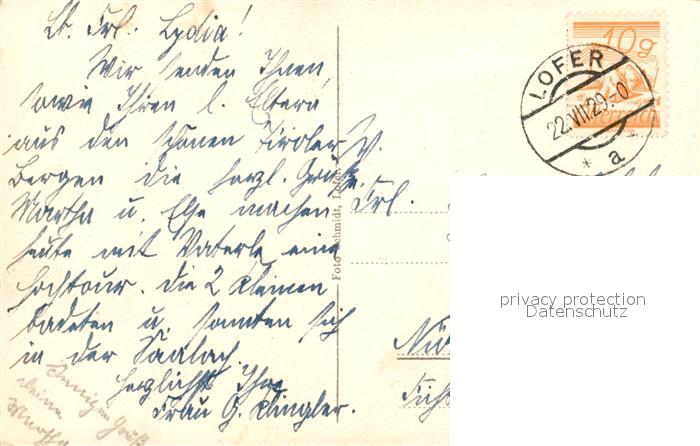 Lb. Frl. Lydia!
Wir senden Ihnen,
sowie Ihren l. Eltern
aus den schönen Tiroler
Bergen die herzl. Grüße.
Martha u. Else machen
heute mit Vaterle eine
Hochtour. Die 2 kleinen
badeten u. sonnten sich
in der Saalach.
Herzlichst Ihre
Frau G. Klingler.
Foto Schmidt, Lofer
10g
LOFER
22.VII.29.-0
* a *
Frl.
privacy protection
Datenschutz